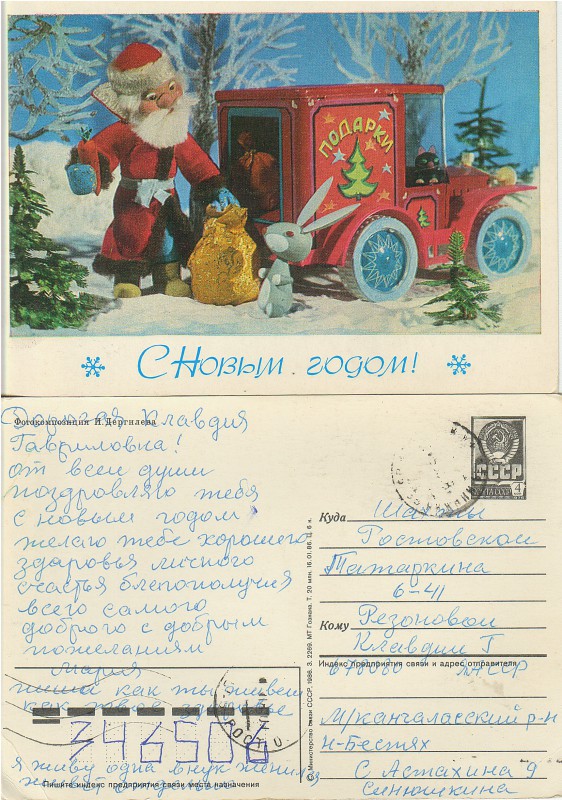 ПОДАРКИ
С Новым годом!
Фотокомпозиция И. Дергилева
Дорогая Клавдия
Гавриловна!
от всей души
поздровляю тебя
с новым годом
желаю тебе хорошего
здоровья личного
счастья благополучия
всего самого
доброго с добрым
пожеланиям
Мария
пиши как ты живеш
как твое здоровье
346506
я живу одна внук женился
живут
Пишите индекс предприятия связи места назначения
© Министерство связи СССР, 1986. З. 2269. МТ Гознака. Т. 20 млн. 16. 01. 86. Ц. 6 к.
СССР
4
Куда Шахты
Ростовской
Татаркина
6-41
Кому Резоновой
Клавдии Г
Индекс предприятия связи и адрес отправителя
678080 ЯАССР
М/канчаласский р-н
н-Бестях
С Астахина 9
синюшкина